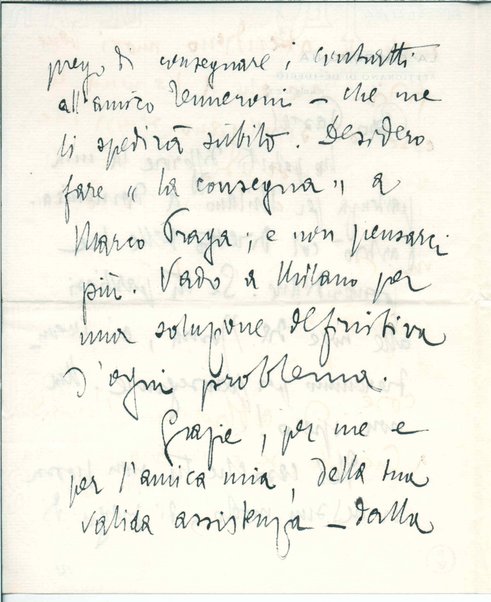 prego di consegnare i contratti
all'amico Tenneroni – che me
li spedirà subito. Desidero
fare "la consegna" a
Marco Praga; e non pensarci
più. Vado a Milano per
una soluzione definitiva
d'ogni problema.
Grazie, per me e
per l'amica mia, della tua
valida assistenza – dalla